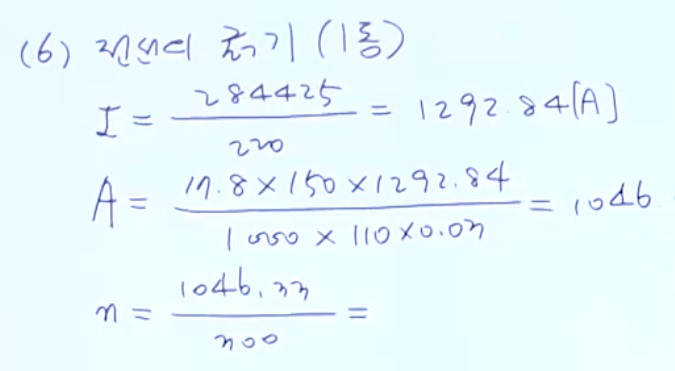 (6) 전선의 굵기 (1동)
I = 284425 / 220 = 1292.84[A]
A = 17.8 × 150 × 1292.84 / 1000 × 110 × 0.03 = 1046.
n = 1046.33 / 300 =